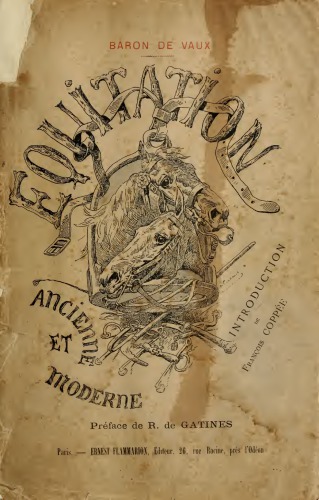 BARON DE VAUX
EQUITATION
ANCIENNE
ET
MODERNE
INTRODUCTION
DE
FRANÇOIS COPPÉE
Préface de R. de GATINES
Paris. — ERNEST FLAMMARION, Éditeur, 26, rue Racine, près l'Odéon